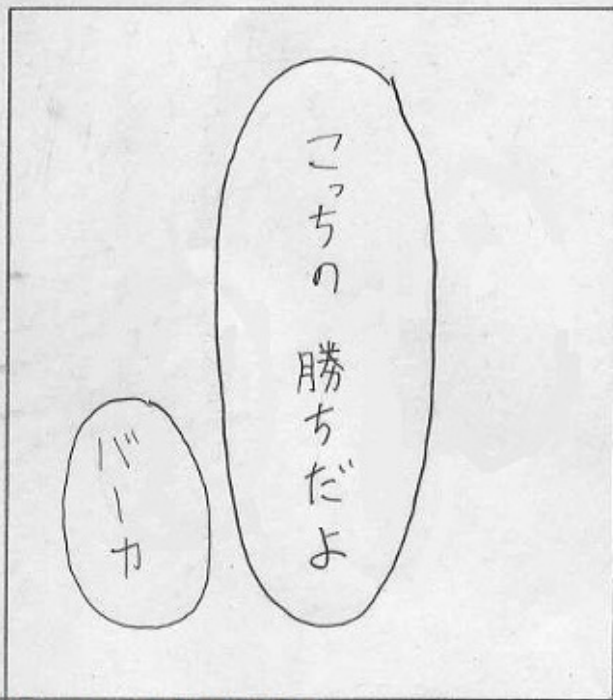 こっちの 勝ちだよ
バーカ